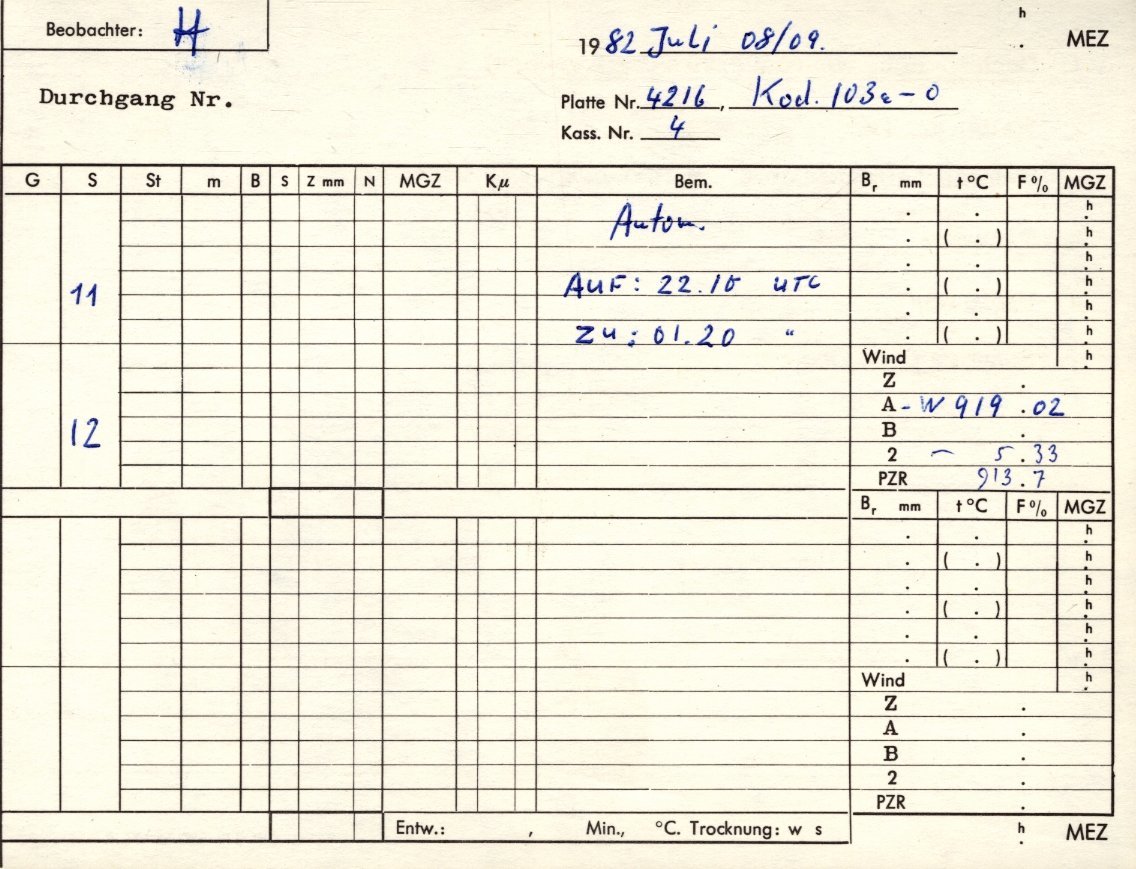 Beobachter: H
h
1982 Juli 08/09. . MEZ
Durchgang Nr.
Platte Nr. 4216, Kod. 103a-0
Kass. Nr. 4
G S St m B S Z mm N MGZ Kμ Bem. Br mm t °C F % MGZ
Autom.
11
AUF: 22.15 UTC
ZU: 01.20 "
Wind h
Z .
A - W 919.02
12
B .
2 – 5.33
PZR 913.7
Br mm t °C F % MGZ
Wind h
Z .
A .
B .
2 .
PZR .
Entw.: , Min., °C. Trocknung: w s
h
. MEZ